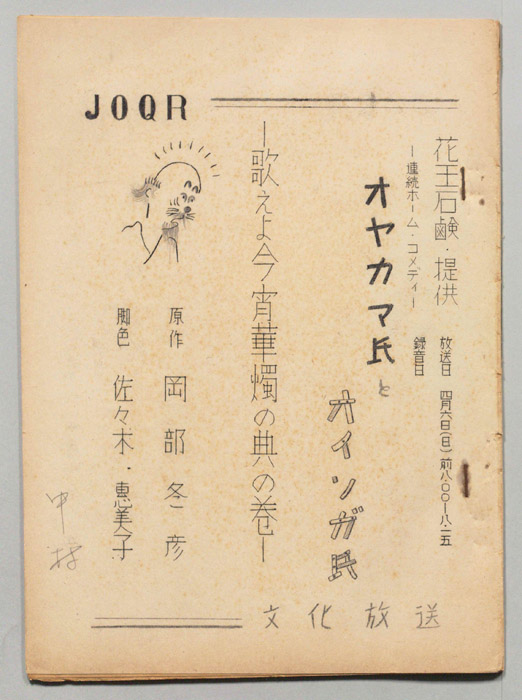 JOQR
花王石鹸・提供
―連続ホーム・コメディ―
オヤカマ氏と
オイソガ氏
放送日 四月六日(日)前八・〇〇―八・一五
録音日
―歌えよ今宵華燭の典の巻―
原作 岡部冬彦
脚色 佐々木・恵美子
中村
文化放送